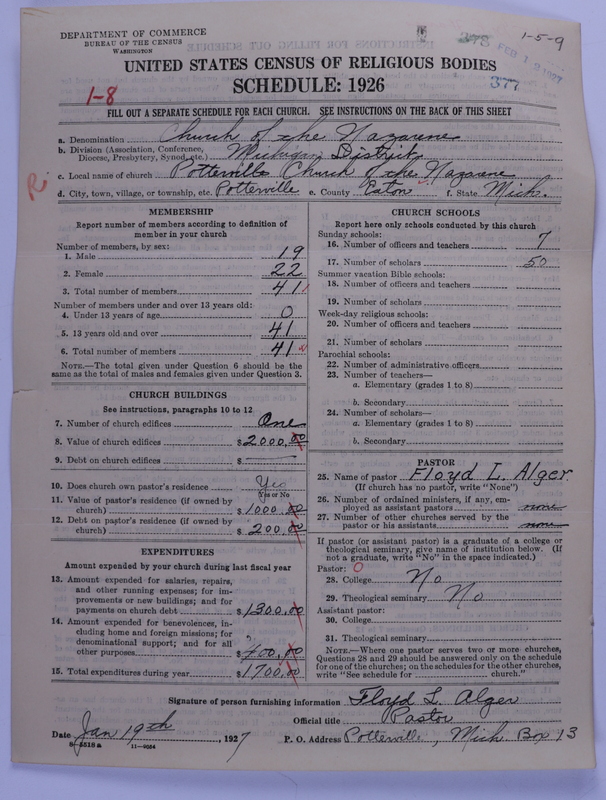 DEPARTMENT OF COMMERCE
BUREAU OF THE CENSUS
WASHINGTON
373
FEB 12 1927
1-5-9
377
UNITED STATES CENSUS OF RELIGIOUS BODIES
SCHEDULE: 1926
1-8
FILL OUT A SEPARATE SCHEDULE FOR EACH CHURCH. SEE INSTRUCTIONS ON THE BACK OF THIS SHEET
a. Denomination Church of the Nazarene
b. Division (Association, Conference, Diocese, Presbytery, Synod, etc.) Michigan District
c. Local name of church Potterville Church of the Nazarene
d. City, town, village, or township, etc. Potterville e. County Eaton f. State Mich.
MEMBERSHIP
Report number of members according to definition of
member in your church
Number of members, by sex:
1. Male 19
2. Female 22
3. Total number of members 41
Number of members under and over 13 years old:
4. Under 13 years of age 0
5. 13 years old and over 41
6. Total number of members 41
NOTE.—The total given under Question 6 should be
same as the total of males and females given under Question 3.
CHURCH BUILDINGS
See instructions, paragraphs 10 to 12
7. Number of church edifices One
8. Value of church edifices $2000.00
9. Debt on church edifices $ —
10. Does church own pastor's residence Yes
Yes or No
11. Value of pastor's residence (if owned by
church) $1000.00
12. Debt on pastor's residence (if owned by
church) $200.00
EXPENDITURES
Amount expended by your church during last fiscal year
13. Amount expended for salaries, repairs,
and other running expenses; for im-
provements or new buildings; and for
payments on church debt $1300.00
14. Amount expended for benevolences, in-
cluding home and foreign missions; for
denominational support; and for all
other purposes $400.00
15. Total expenditures during year $1700.00
CHURCH SCHOOLS
Report here only schools conducted by this church
Sunday schools:
16. Number of officers and teachers 7
17. Number of scholars 50
Summer vacation Bible schools:
18. Number of officers and teachers
19. Number of scholars
Week-day religious schools:
20. Number of officers and teachers
21. Number of scholars
Parochial schools:
22. Number of administrative officers
23. Number of teachers—
a. Elementary (grades 1 to 8)
b. Secondary
24. Number of scholars—
a. Elementary (grades 1 to 8)
b. Secondary
PASTOR
25. Name of pastor Floyd L. Alger
(If church has no pastor, write "None")
26. Number of ordained ministers, if any, em-
ployed as assistant pastors none
27. Number of other churches served by the
pastor or his assistants none
If pastor (or assistant pastor) is a graduate of a college or
theological seminary, give name of institution below. (If
not a graduate, write "No" in the space indicated.)
Pastor: 0
28. College No
29. Theological seminary No
Assistant pastor:
30. College
31. Theological seminary
NOTE.—Where one pastor serves two or more churches,
Questions 28 and 29 should be answered only on the schedule
for one of the churches; on the schedules for the other churches,
write "See schedule for church."
Signature of person furnishing information Floyd L. Alger
Official title Pastor
Date Jan 19th, 1927 P. O. Address Potterville, Mich Box 13
8-5518a 11-9054